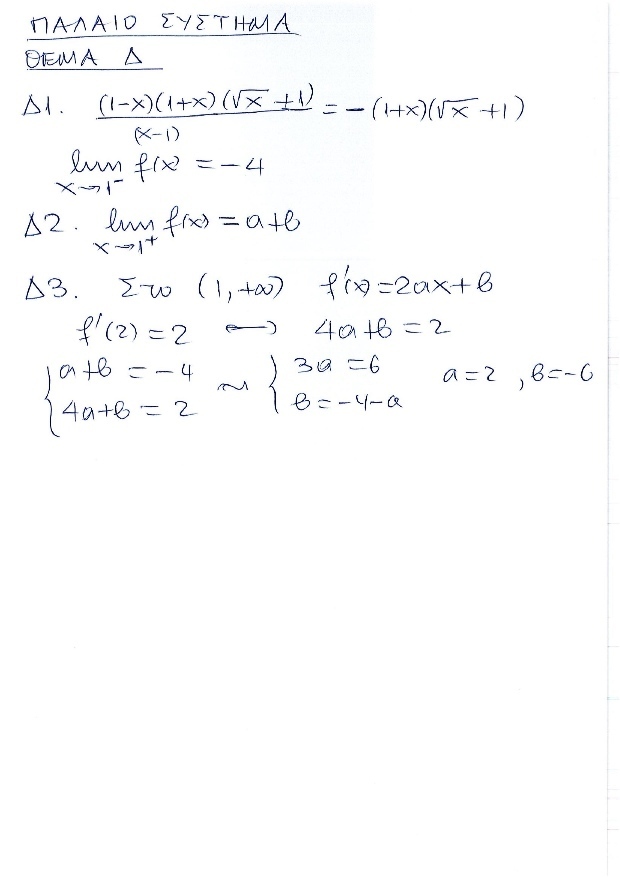 ΠΑΛΑΙΟ ΣΥΣΤΗΜΑ
ΘΕΜΑ Δ
Δ1. (1-x)(1+x)(√x +1) / (x-1) = -(1+x)(√x +1)
lim x→1⁻ f(x) = -4
Δ2. lim x→1⁺ f(x) = a+b
Δ3. Στο (1,+∞) f'(x)=2ax+b
f'(2)=2 ⟷ 4a+b=2
{ a+b=-4 ~ { 3a=6 a=2, b=-6
{ 4a+b=2 { b=-4-a